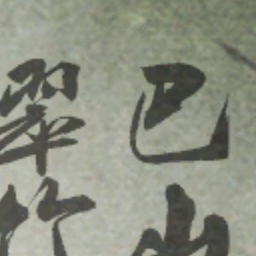 巴山
翠竹